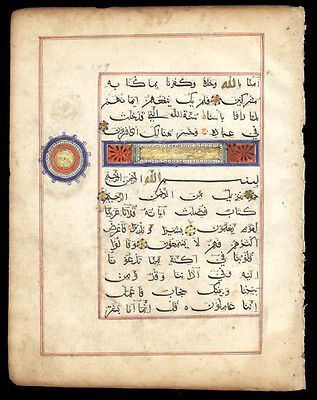 آمنا بالله وحده وكفرنا بما كنا به
مشركين فلم يك ينفعهم إيمانهم
لما رأوا بأسنا سنة الله التي قد خلت
في عباده وخسر هنالك الكافرون
بسم الله الرحمن الرحيم
حم تنزيل من الرحمن الرحيم
كتاب فصلت آياته قرآنا عربيا
لقوم يعلمون بشيرا ونذيرا فأعرض
أكثرهم فهم لا يسمعون وقالوا
قلوبنا في أكنة مما تدعونا
إليه وفي آذاننا وقر ومن
بيننا وبينك حجاب فاعمل
إننا عاملون قل إنما أنا بشر